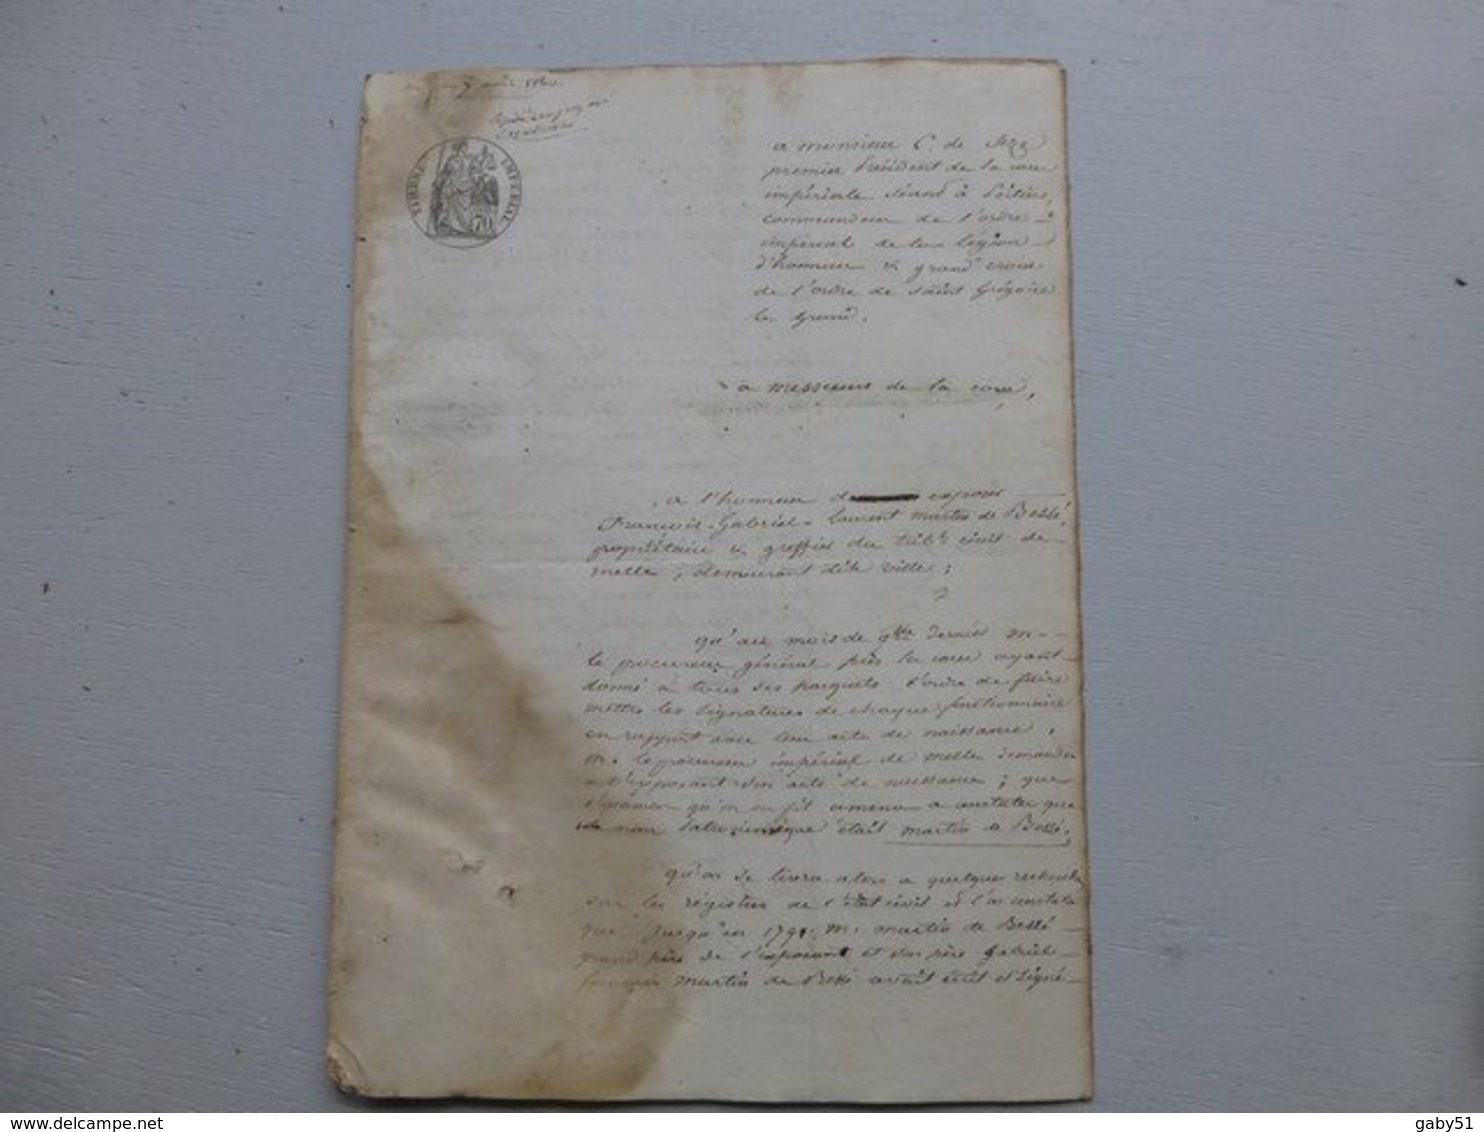 août 1860
TIMBRE IMPERIAL
70
a monsieur C. de Sèze
premier Président de la cour
impériale séant à Poitiers,
commandeur de l'ordre
impérial de la légion
d'honneur & grand croix
de l'ordre de saint Grégoire
le grand.
a messieurs de la cour,
a l'honneur de exposer
François-Gabriel-Laurent martin de Bessé,
propriétaire & greffier du trib.l civil de
melle, demeurant dite ville;
qu'au mois de 9bre dernier m.
le procureur général près la cour ayant
donné à tous ses parquets l'ordre de faire
mettre les signatures de chaque fonctionnaire
en rapport avec leur acte de naissance,
m. le procureur impérial de melle demanda
a l'exposant son acte de naissance; que
l'examen qu'on en fit amena a constater que
nom patronimique était martin de Bessé,
qu'on se livra alors a quelques recherches
sur les régistres de l'état civil et l'on constata
que jusqu'en 1791, m. martin de Bessé
grand père de l'exposant et son père Gabriel
françois martin de Bessé avait écrit et signé
delcampe.net
gaby51